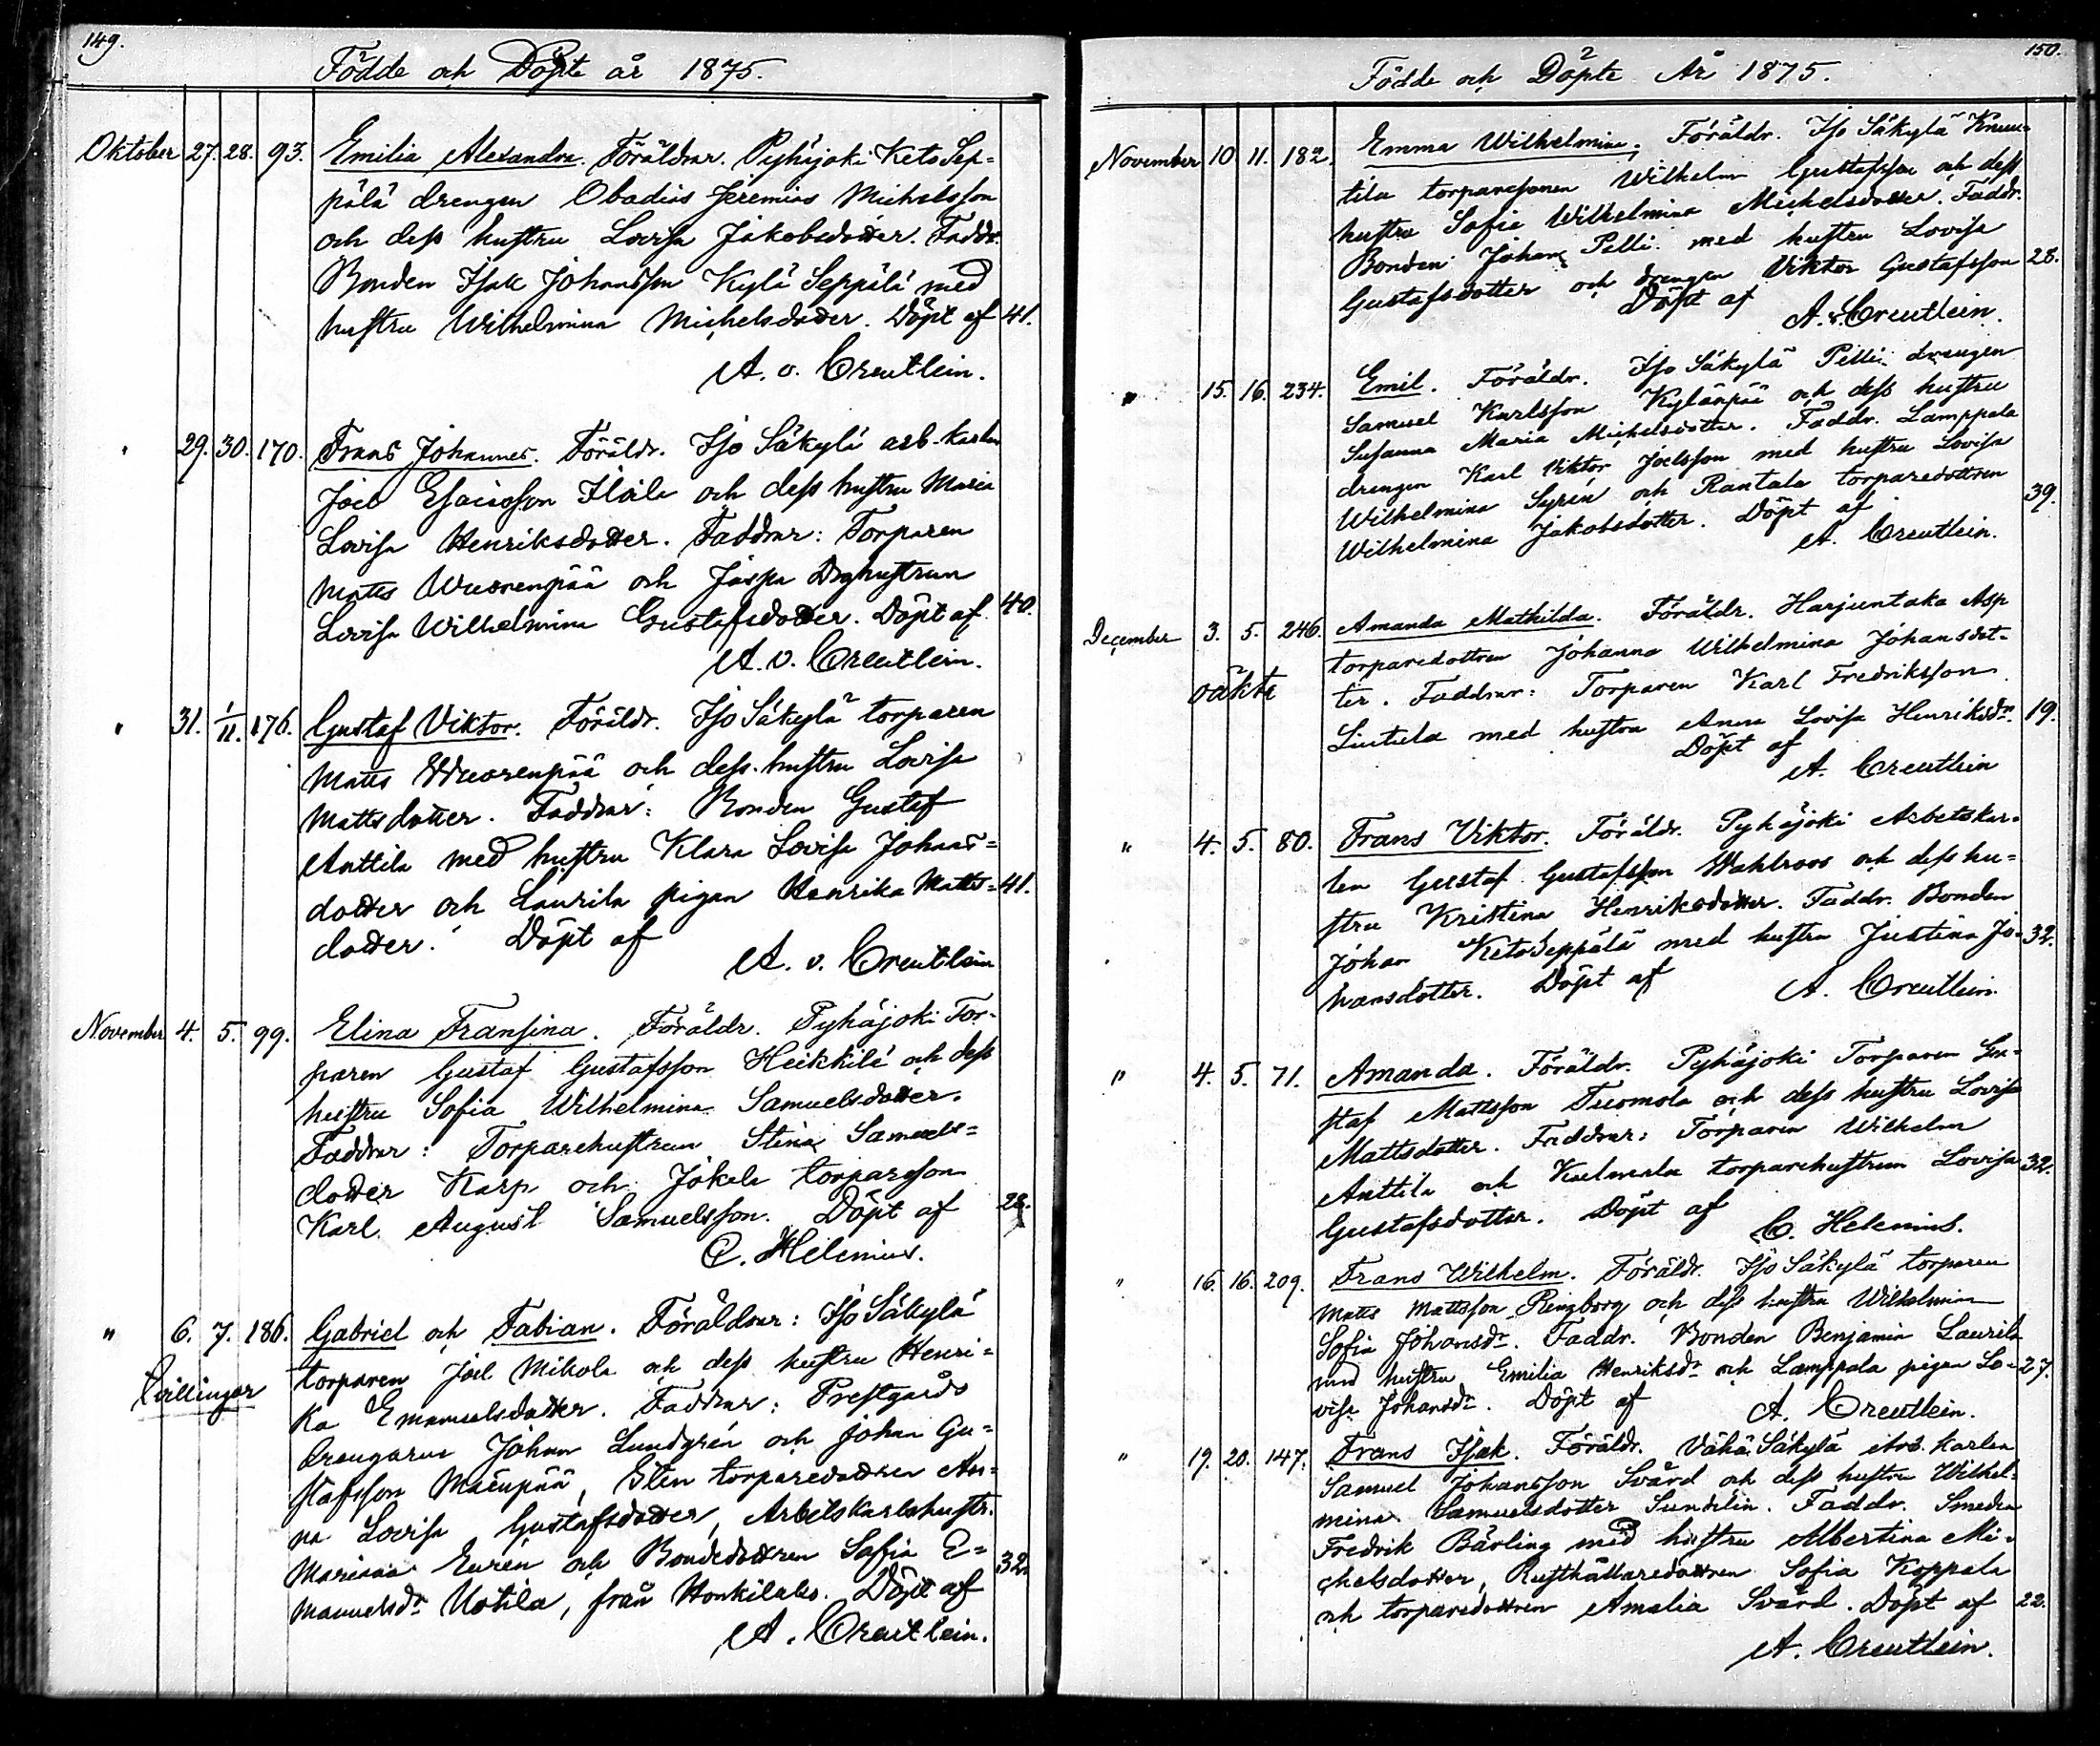 149.
Födde och Döpte år 1875.
Oktober 27. 28. 93. Emilia Alexandra. Föräldrar. Pyhäjoki Keto Sep=
pälä drengen Obadius Jeremias Michelsson
och dess hustru Lovisa Jakobsdotter. Faddr.
Bonden Isak Johansson Kylä Seppälä med
hustru Wilhelmina Michelsdotter. Döpt af 41.
A. v. Creutlein.
" 29. 30. 170. Frans Johannes. Föräldr. Iso Säkylä arb. karlen
Joel Esaiasson Iloila och dess hustru Maria
Lovisa Henriksdotter. Faddrar: Torparen
Matts Wuorenpää och Jaspa Doghustrun
Lovisa Wilhelmina Gustafsdotter. Döpt af 40.
A. v. Creutlein.
" 31. 1/11. 176. Gustaf Viktor. Föräldr. Iso Säkylä torparen
Matts Wuorenpää och dess hustru Lovisa
Mattsdotter. Faddrar: Bonden Gustaf
Anttila med hustru Klara Lovisa Johans=
dotter och Laurila pigan Henrika Matts= 41.
dotter. Döpt af
A. v. Creutlein
November 4. 5. 99. Elina Fransina. Föräldr. Pyhäjoki Tor-
paren Gustaf Gustafsson Heikkilä och dess
hustru Sofia Wilhelmina Samuelsdotter.
Faddrar: Torparehustrun Stina Samuels=
dotter Karp och Jokela torpareson
Karl August Samuelsson. Döpt af 28.
C. Helenius.
" 6. 7. 186. Gabriel och Fabian. Föräldrar: Iso Säkylä
torparen Joel Mikola och dess hustru Henri=
Tvillingar
ka Emanuelsdotter. Faddrar: Prestgårds
drengarne Johan Lundgrén och Johan Gu=
stafsson Mäenpää, Sten torparedottren An=
na Lovisa Gustafsdotter, Arbetskarlshustr.
Mariana Eurén och Bondedottren Sofia E= 32.
manuelsdr Uotila, från Honkilaks. Döpt af
A. Creutlein.
150.
Födde och Döpte År 1875.
November 10. 11. 182. Emma Wilhelmina. Föräldr. Iso Säkylä Knuu=
tila torparesonen Wilhelm Gustafsson och dess
hustru Sofia Wilhelmina Michelsdotter. Faddr.
Bonden Johan Pelli med hustru Lovisa
Gustafsdotter och drengen Viktor Gustafsson 28.
Döpt af
A. v. Creutlein.
" 15. 16. 234. Emil. Föräldr. Iso Säkylä Pelli drengen
Samuel Karlsson Kylänpää och dess hustru
Susanna Maria Michelsdotter. Faddr. Lamppala
drengen Karl Viktor Joelsson med hustru Lovisa
Wilhelmina Syrén och Rantala torparedottren 39.
Wilhelmina Jakobsdotter. Döpt af
A. Creutlein.
December 3. 5. 246. Amanda Mathilda. Föräldr. Harjuntaka Asp
torparedottren Johanna Wilhelmina Johansdot-
oäkta
ter. Faddrar: Torparen Karl Fredriksson
Lintula med hustru Anna Lovisa Henriksdr. 19.
Döpt af
A. Creutlein
" 4. 5. 80. Frans Viktor. Föräldr. Pyhäjoki Arbetskar-
len Gustaf Gustafsson Wahlroos och dess hu=
stru Kristina Henriksdotter. Faddr. Bonden
Johan KetoSeppälä med hustru Justina Jo- 32.
hansdotter. Döpt af
A. Creutlein.
" 4. 5. 71. Amanda. Föräldr. Pyhäjoki Torparen Gu-
staf Mattsson Tuomola och dess hustru Lovisa
Mattsdotter. Faddrar: Torparen Wilhelm
Anttila och Kulmala torparehustrun Lovisa 32.
Gustafsdotter. Döpt af
C. Helenius.
" 16. 16. 209. Frans Wilhelm. Föräldr. Iso Säkylä torparen
Matts Mattsson Ringborg och dess hustru Wilhelmina
Sofia Johansdr. Faddr. Bonden Benjamin Laurila
med hustru Emilia Henriksdr och Lamppala pigan Lo- 27.
visa Johansdr. Döpt af
A. Creutlein.
" 19. 20. 147. Frans Isak. Föräldr. Vähä Säkylä Arb. karlen
Samuel Johansson Svärd och dess hustru Wilhel-
mina Samuelsdotter Sundelin. Faddr. Smeden
Fredrik Bärling med hustru Albertina Mi-
chelsdotter, Rusthållaredottren Sofia Koppala
och torparedottren Amalia Svärd. Döpt af 22.
A. Creutlein.